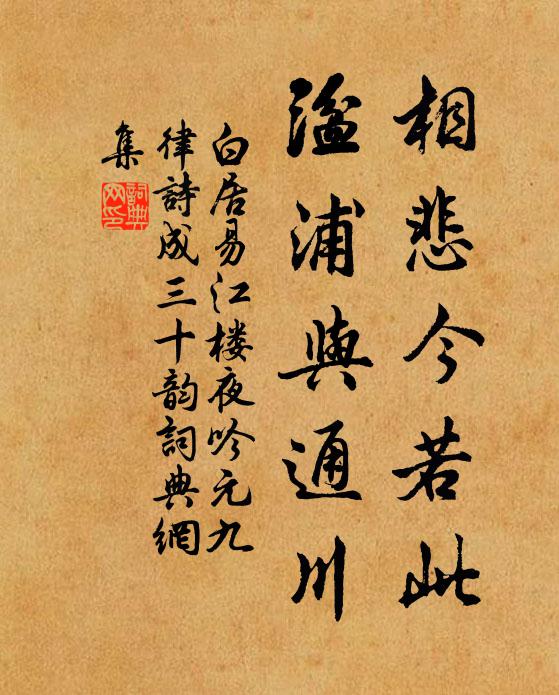 相悲今若此
湓浦與通川
白居易江楼夜吟元九
律詩成三十韵詞典網
集
詞典網印